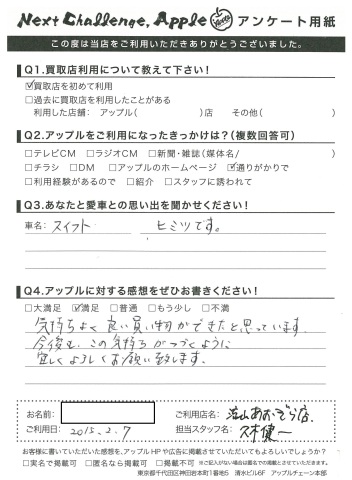 Next Challenge, Apple アンケート用紙
この度は当店をご利用いただきありがとうございました。
Q1.買取店利用について教えて下さい!
☑買取店を初めて利用
□過去に買取店を利用したことがある
利用した店舗: アップル( )店 その他( )
Q2.アップルをご利用になったきっかけは?(複数回答可)
□テレビCM □ラジオCM □新聞・雑誌(媒体名/ )
□チラシ □DM □アップルのホームページ ☑通りがかりで
□利用経験があるので □紹介 □スタッフに誘われて
Q3.あなたと愛車との思い出を聞かせください!
車名: スイフト ヒミツです。
Q4.アップルに対する感想をぜひお書きください!
□大満足 ☑満足 □普通 □もう少し □不満
気持ちよく良い買い物ができたと思っています。
今後も、この気持ちがつづくように
宜しくよろしくお願い致します。
お名前: ご利用店名: 流山おおぞら店.
ご利用日: 2015.2.7 担当スタッフ名:
お客様に書いていただいた感想を、アップルHPや広告に掲載させていただいてもよろしいでしょうか?
□実名で掲載可 □匿名なら掲載可 □掲載不可 ※ご記入がない場合は匿名での掲載とさせていただきます。
東京都千代田区神田岩本町1番地5 清水ビル6F アップルチェーン本部